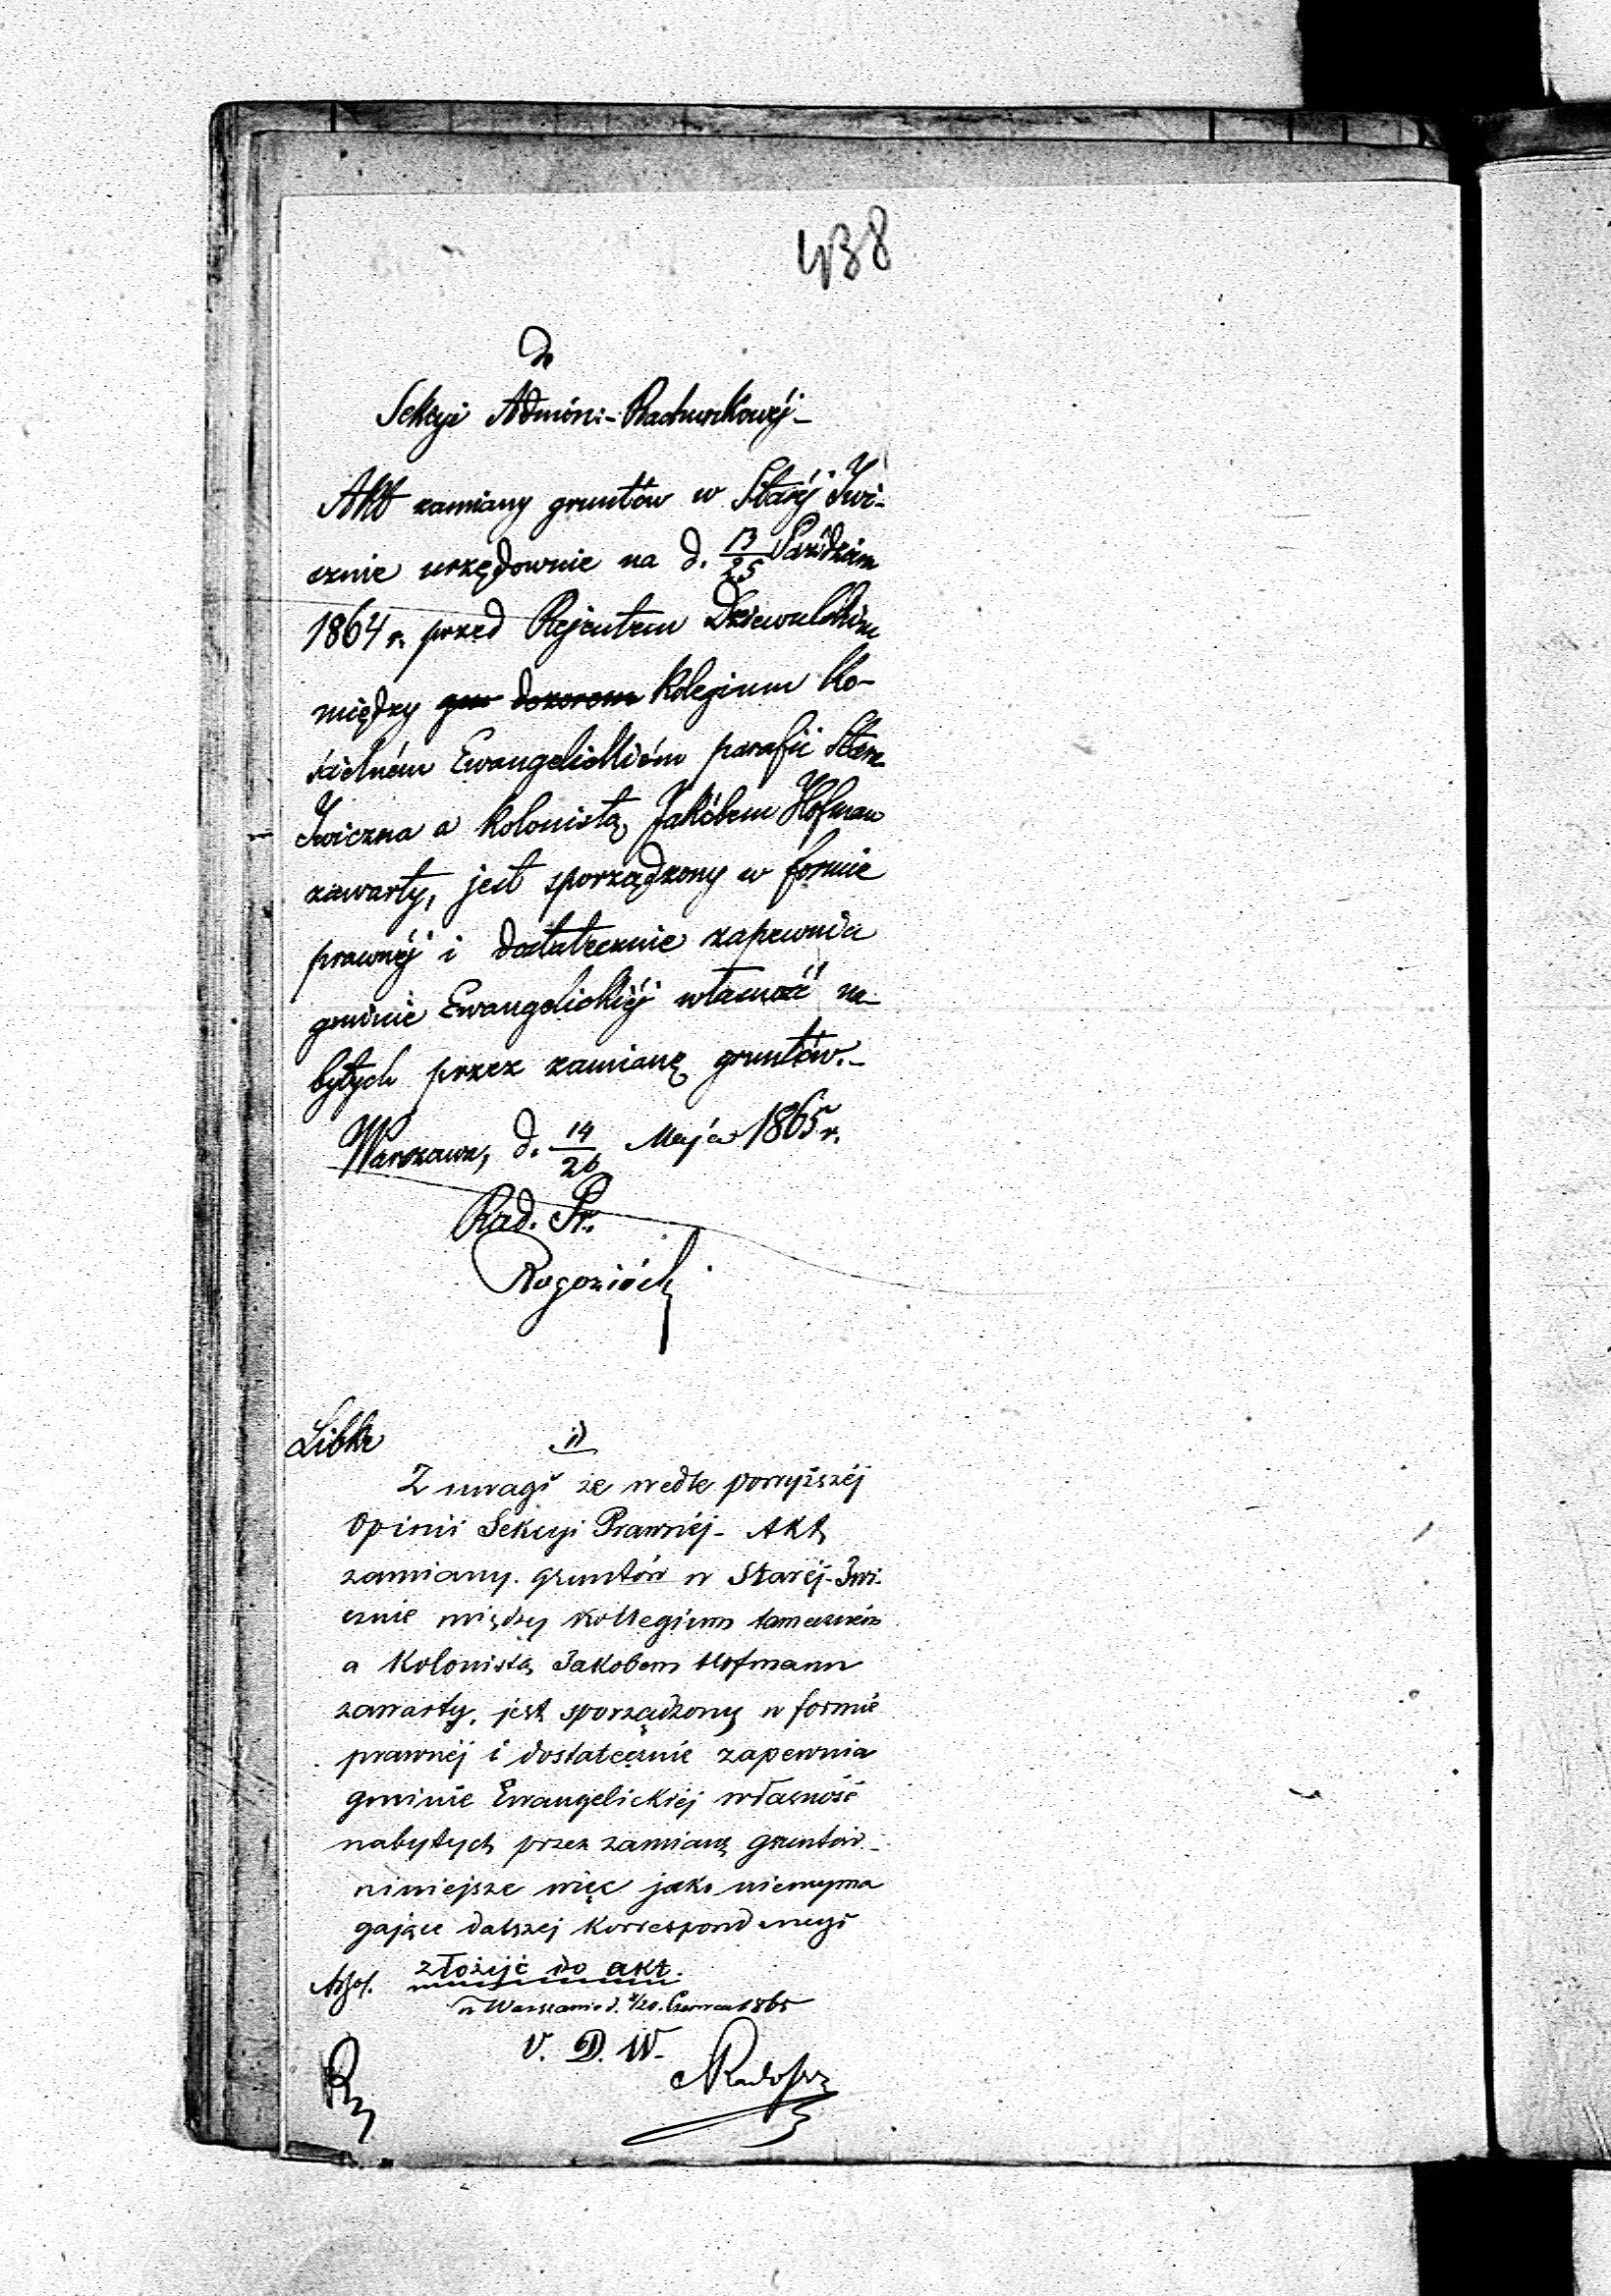 438
do
Sekcyi Admin:-Rachunkowéj-
Akt zamiany gruntów w Staréj Iwi-
cznie urzędownie na d. 13/25 Paździer
1864 r. przed Rejentem Dziewulskim
między gm dozorem Kolegium Ko-
ścielném Ewangelickiém parafii Stara
Iwiczna a Kolonistą Jakóbem Hofman
zawarty, jest sporządzony w formie
prawnéj i dostatecznie zapewnia
gminie Ewangelickiéj własność na-
bytych przez zamianę gruntów.-
Warszawa, d. 14/26 Maja 1865 r.
Rad. Pr.
Rogoziński
1)
Z uwagi że wedle powyższéj
Opinii Sekcyi Prawnéj- Akt
zamiany gruntów w Staréj-Iwi-
cznie między Kollegium tameczném
a Kolonistą Jakobem Hofmann
zawarty, jest sporządzony w formie
prawnéj i dostatecznie zapewnia
gminie Ewangelickiéj własność
nabytych przez zamianę gruntów-
niniejsze więc jako niewyma
gające dalszej Korrespondencyi
złożyć do akt.
w Warszawie d. /20. Czerwca 1865
V. D. W.